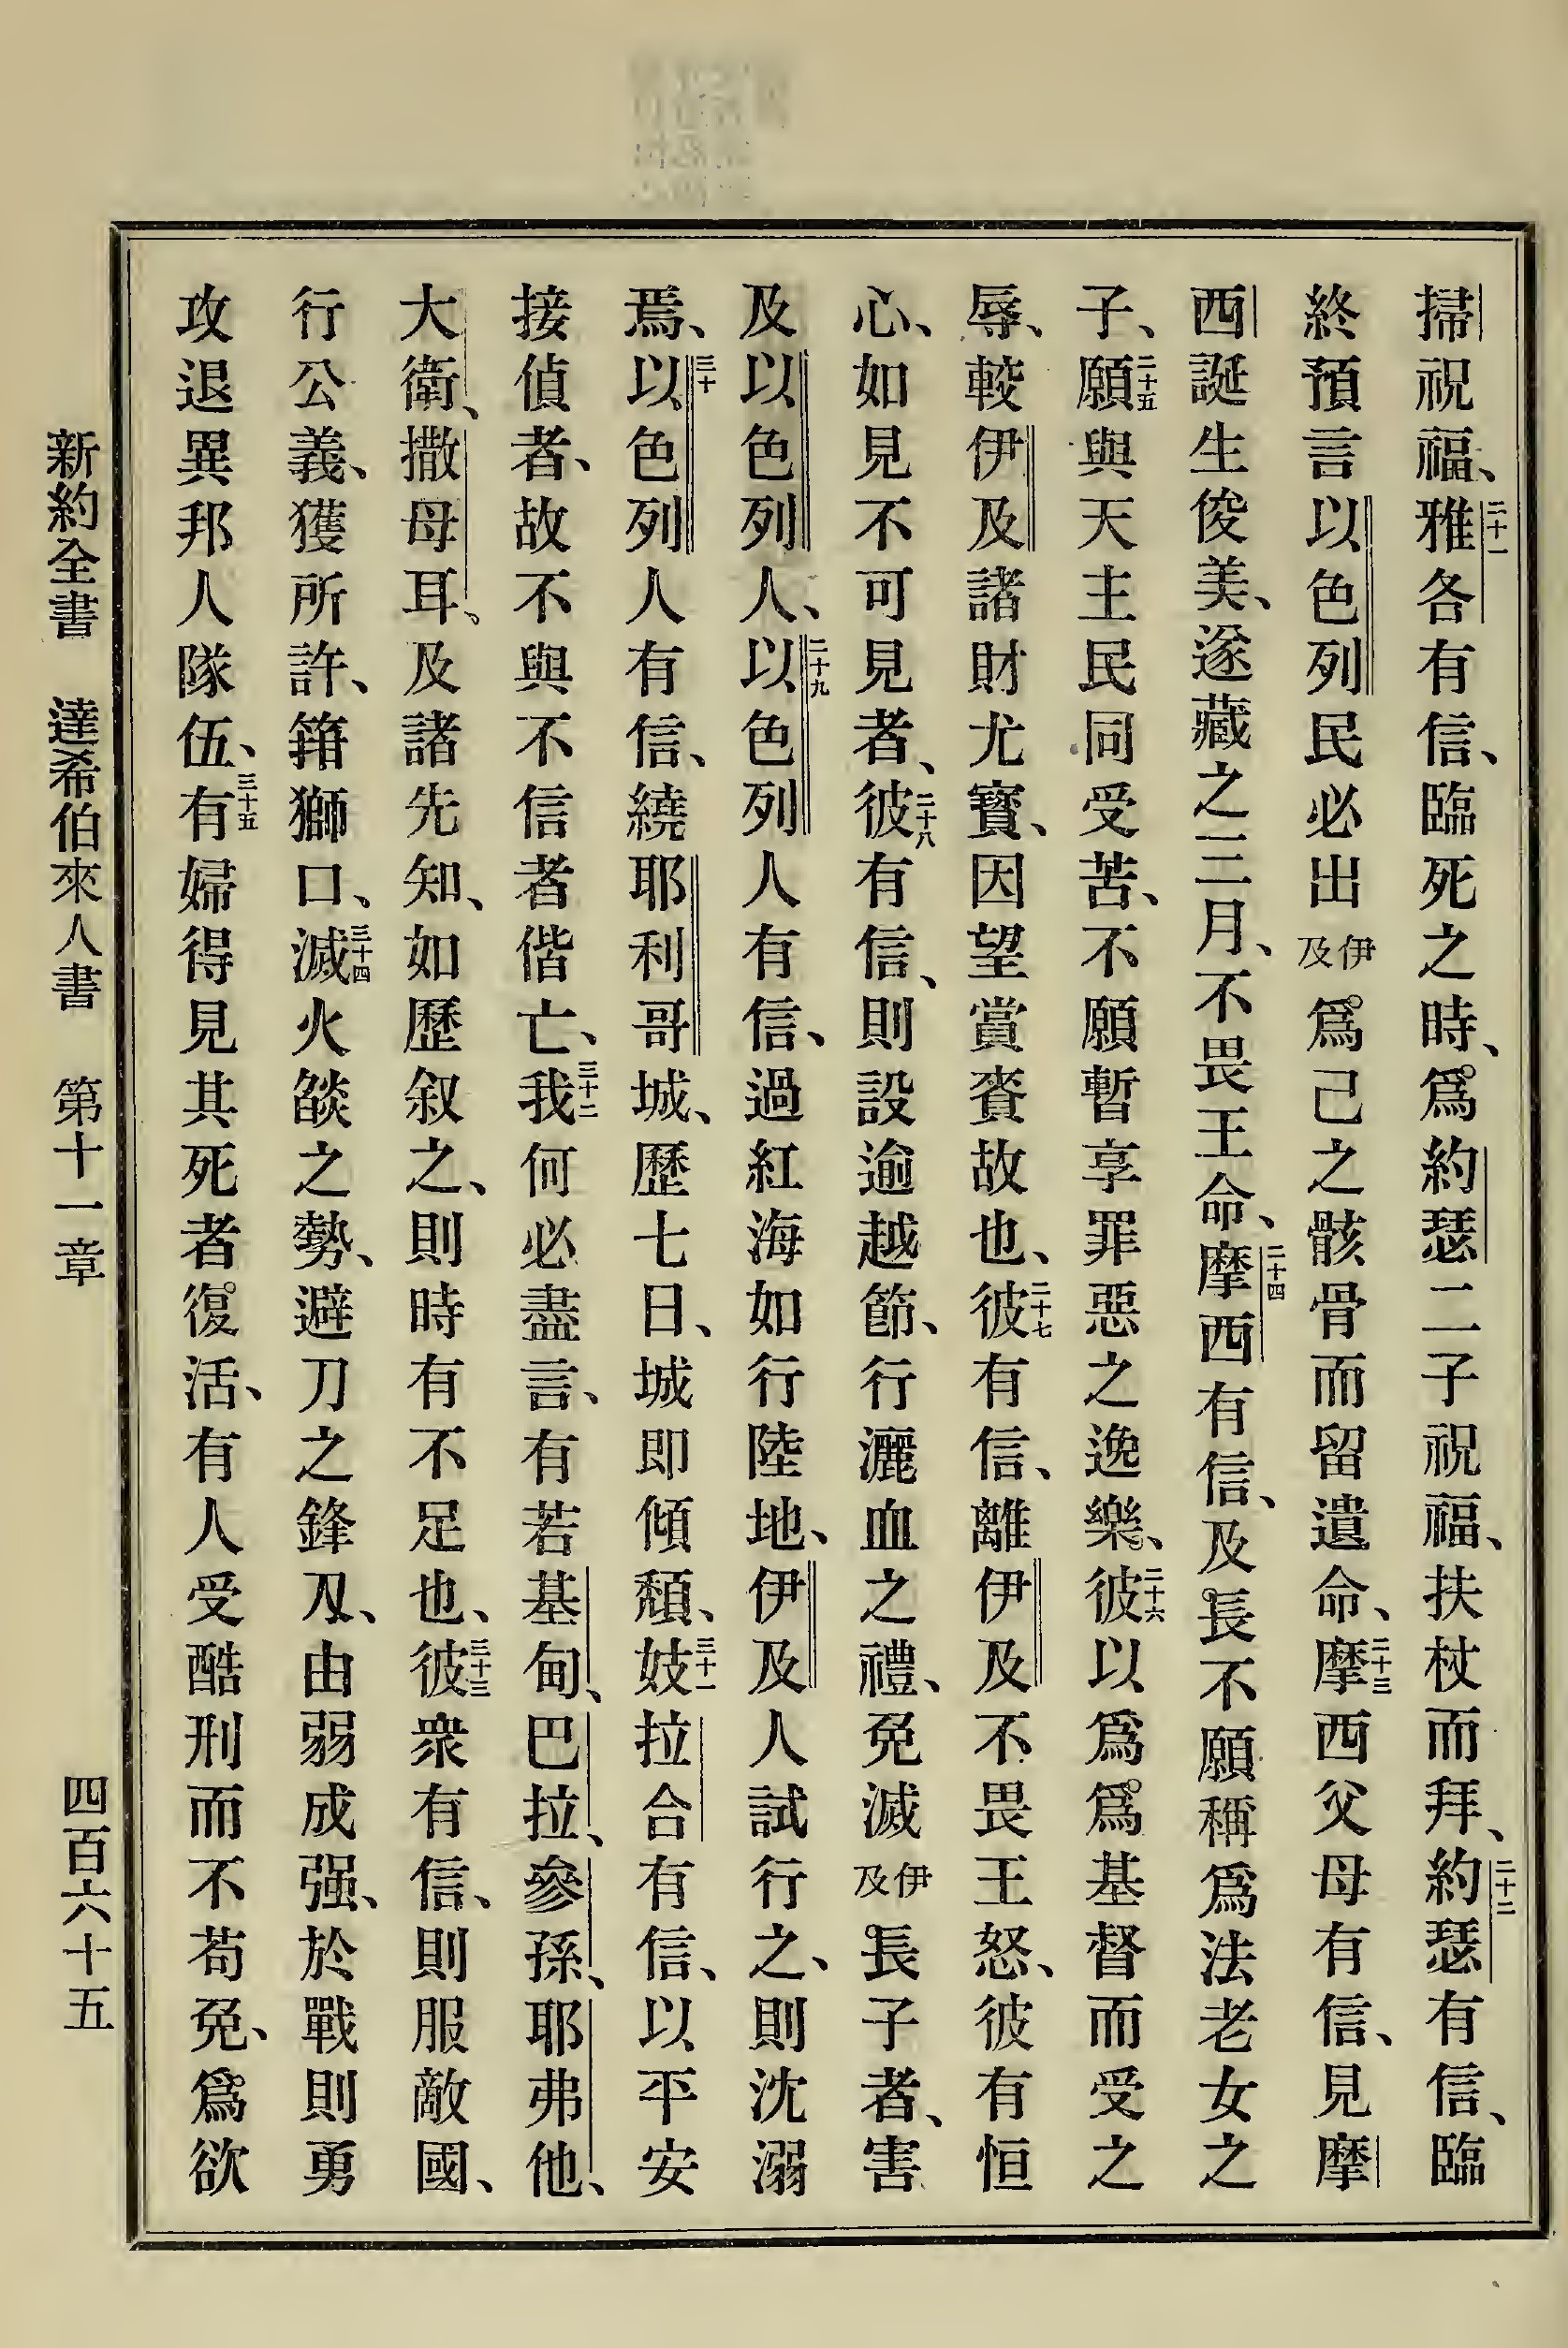 掃祝福、二十一雅各有信、臨死之時、爲約瑟二子祝福、扶杖而拜、二十二約瑟有信、臨
終預言以色列民必出伊及爲己之骸骨而留遺命、二十三摩西父母有信、見摩
西誕生俊美、遂藏之三月、不畏王命、二十四摩西有信、及長不願稱爲法老女之
子、二十五願與天主民同受苦、不願暫享罪惡之逸樂、二十六彼以爲爲基督而受之
辱、較伊及諸財尤寶、因望賞賚故也、二十七彼有信、離伊及不畏王怒、彼有恒
心、如見不可見者、二十八彼有信、則設逾越節、行灑血之禮、免滅伊及長子者、害
及以色列人、二十九以色列人有信、過紅海如行陸地、伊及人試行之、則沈溺
焉、三十以色列人有信、繞耶利哥城、歷七日、城即傾頹、三十一妓拉合有信、以平安
接偵者、故不與不信者偕亡、三十二我何必盡言、有若基甸、巴拉、參孫、耶弗他、
大衛、撒母耳、及諸先知、如歷叙之、則時有不足也、三十三彼衆有信、則服敵國、
行公義、獲所許、箝獅口、三十四滅火燄之勢、避刀之鋒刄、由弱成强、於戰則勇
攻退異邦人隊伍、三十五有婦得見其死者復活、有人受酷刑而不苟免、爲欲
新約全書 達希伯來人書 第十一章 四百六十五